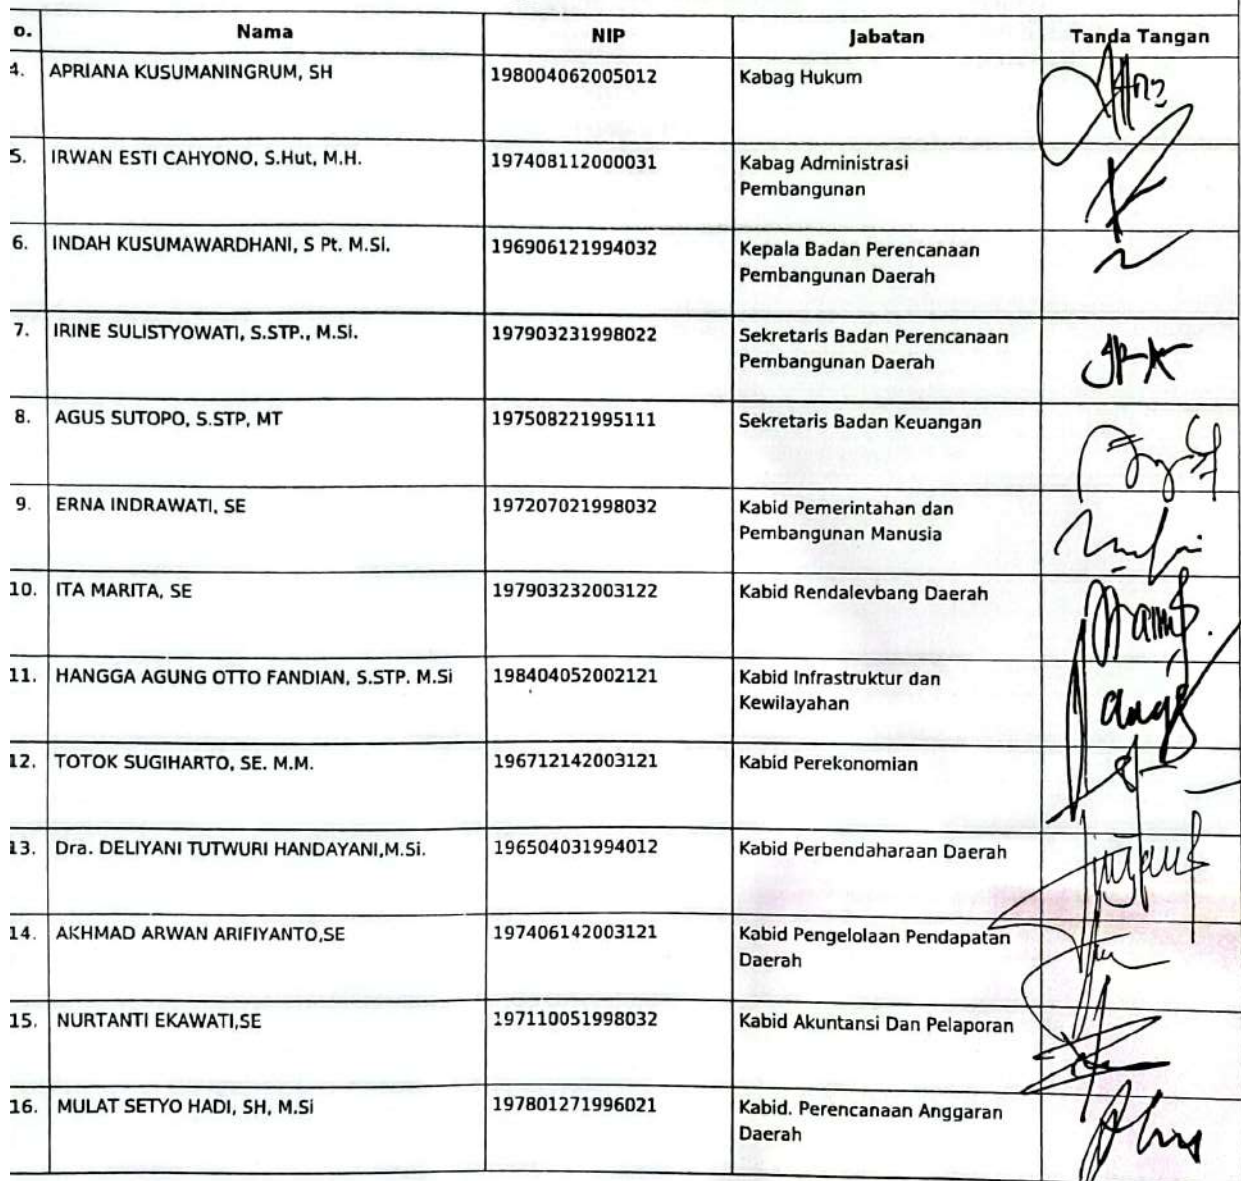 o. Nama NIP Jabatan Tanda Tangan
4. APRIANA KUSUMANINGRUM, SH 198004062005012 Kabag Hukum
5. IRWAN ESTI CAHYONO, S.Hut, M.H. 197408112000031 Kabag Administrasi
Pembangunan
6. INDAH KUSUMAWARDHANI, S Pt. M.Si. 196906121994032 Kepala Badan Perencanaan
Pembangunan Daerah
7. IRINE SULISTYOWATI, S.STP., M.Si. 197903231998022 Sekretaris Badan Perencanaan
Pembangunan Daerah
8. AGUS SUTOPO, S.STP, MT 197508221995111 Sekretaris Badan Keuangan
9. ERNA INDRAWATI, SE 197207021998032 Kabid Pemerintahan dan
Pembangunan Manusia
10. ITA MARITA, SE 197903232003122 Kabid Rendalevbang Daerah
11. HANGGA AGUNG OTTO FANDIAN, S.STP. M.Si 198404052002121 Kabid Infrastruktur dan
Kewilayahan
12. TOTOK SUGIHARTO, SE. M.M. 196712142003121 Kabid Perekonomian
13. Dra. DELIYANI TUTWURI HANDAYANI,M.Si. 196504031994012 Kabid Perbendaharaan Daerah
14. AKHMAD ARWAN ARIFIYANTO,SE 197406142003121 Kabid Pengelolaan Pendapatan
Daerah
15. NURTANTI EKAWATI,SE 197110051998032 Kabid Akuntansi Dan Pelaporan
16. MULAT SETYO HADI, SH, M.Si 197801271996021 Kabid. Perencanaan Anggaran
Daerah